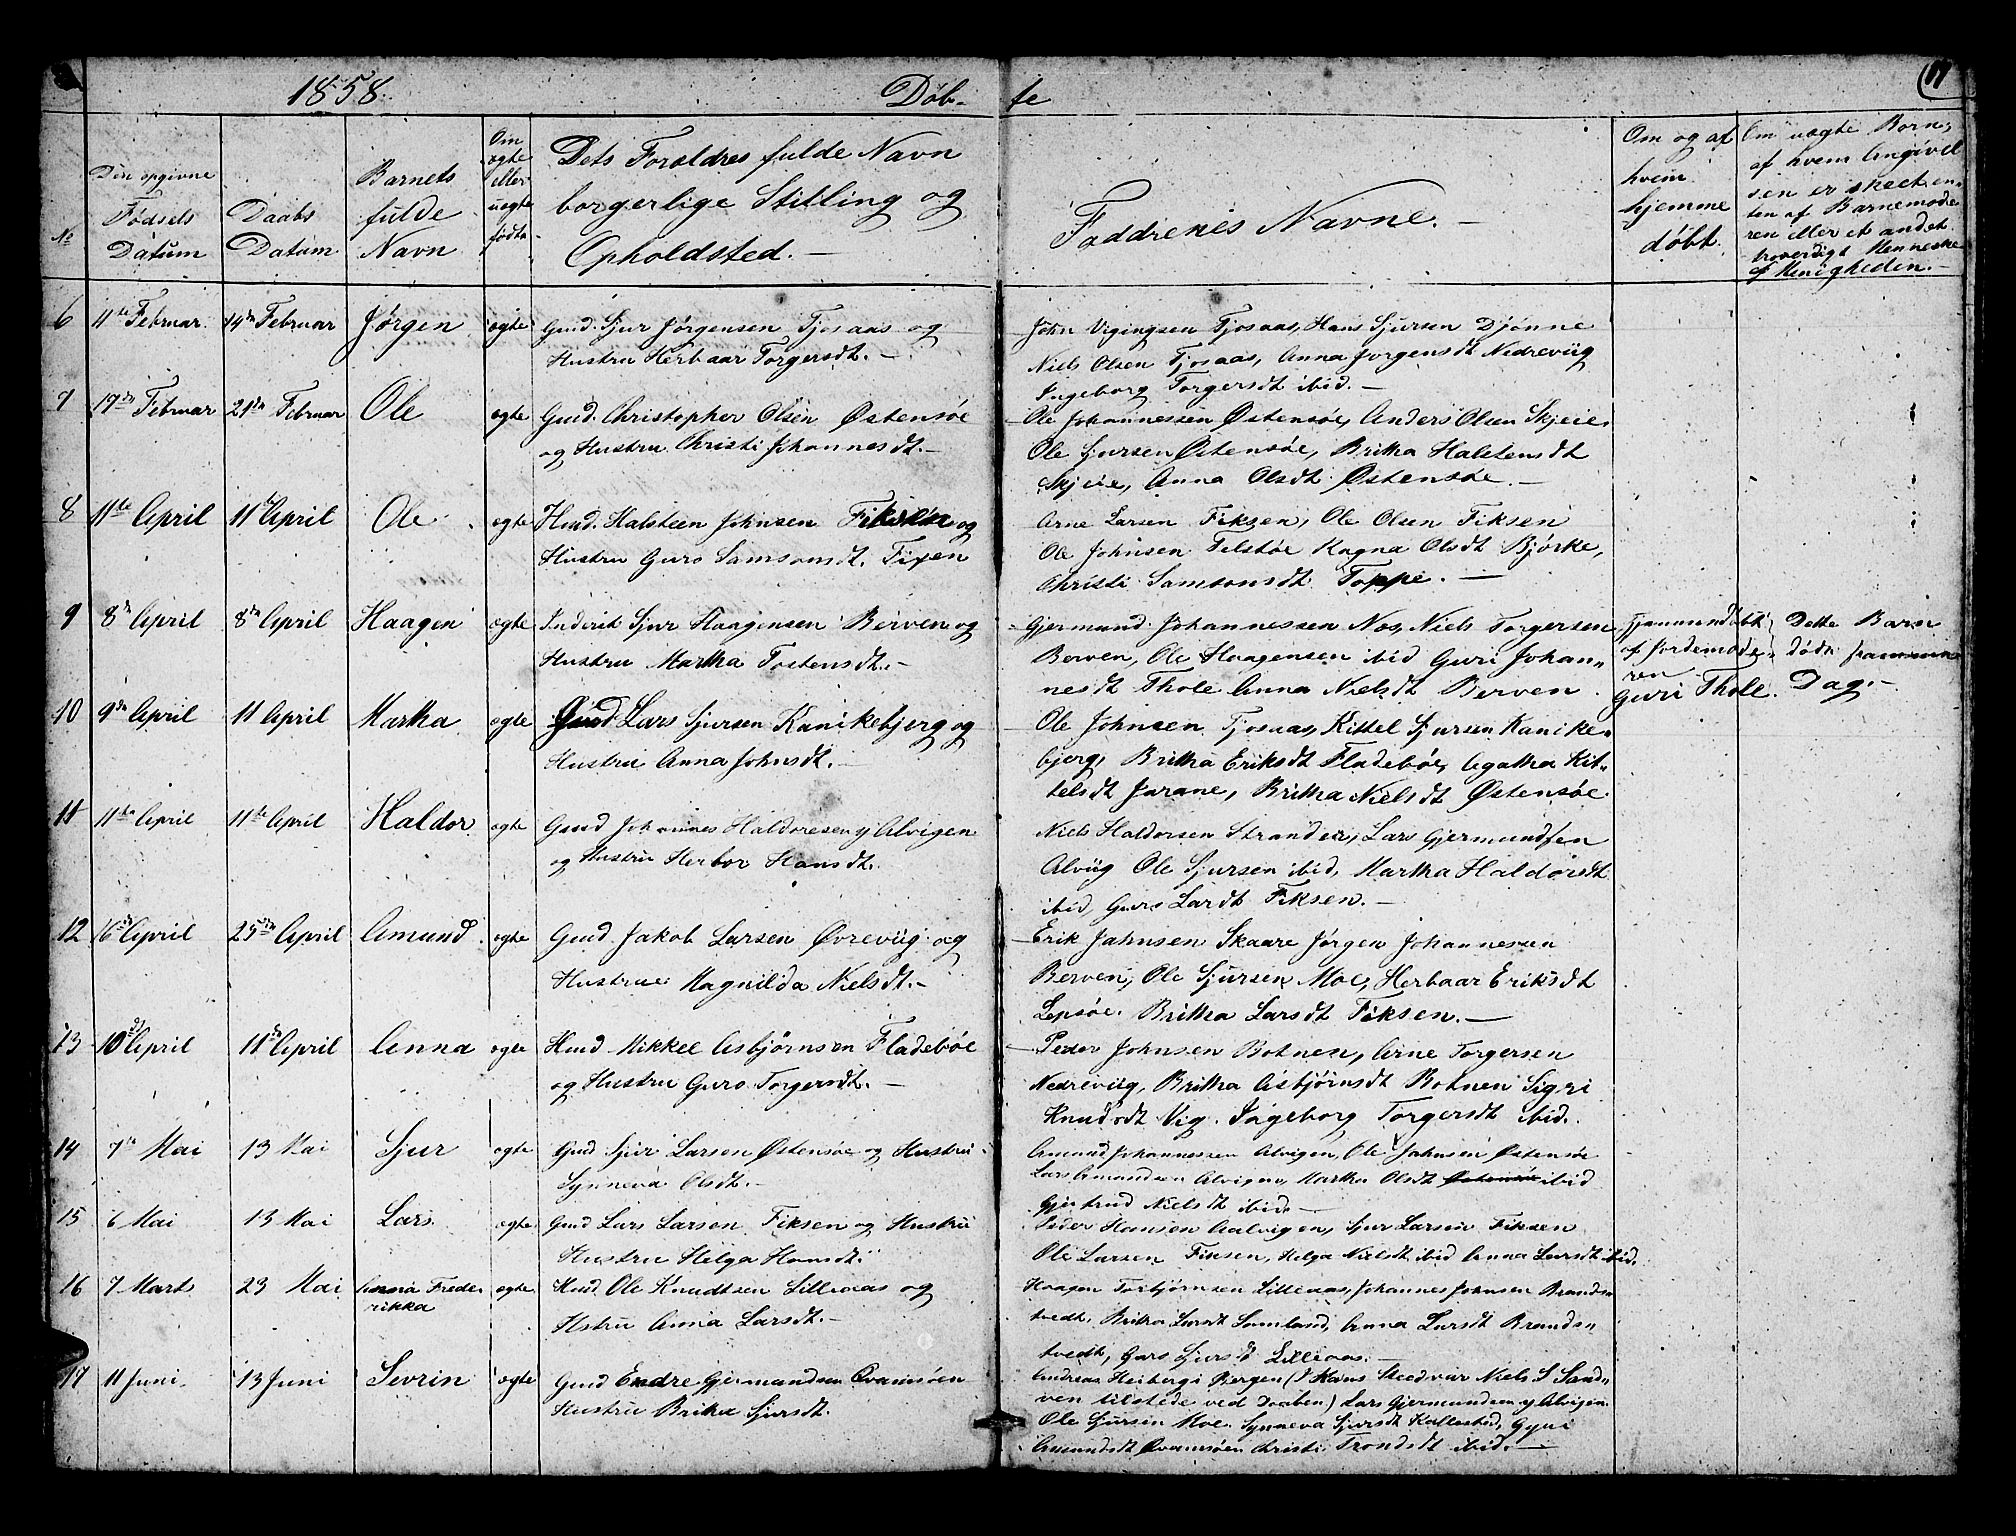 1858. Døb- te
No
Den opgivne Fødsels Datum
Daabs Datum
Barnets fulde Navn
Om ægte eller uægte født.
Dets Forældres fulde Navn borgerlige Stilling og Opholdsted.
Faddrenes Navne.
Om og af hvem hjemme døbt.
Om uægte Born, af hvem Angivelsen er skeet, enten af Barnemoderen eller et andet troværdigt Menneske af Menigheden.
6 11te Februar. 14de Februar Jørgen ægte Gmd. Sjur Jørgensen Tjosaas og
Hustru Herbaar Torgersdt.
John Vigingsen Tjosaas, Hans Sjursen Djønne
Niels Olsen Tjosaas, Anna Jørgensdt Nedreviig
Ingeborg Torgersdt ibid.
7 17de Februar 21de Februar Ole ægte Gmd. Christopher Olsen Østensøe
og Hustru Christi Johannesdt.
Ole Johannessen Østensøe, Anders Olsen Skjeie.
Ole Sjursen Østensøe, Britha Halstensdt
Skjeie, Anna Olsdt Østensøe.
8 11te April 11te April Ole ægte Hmd. Halsteen Johnsen Fiksen og
Hustru Guro Samsonsdt. Fixen
Arne Larsen Fiksen, Ole Olsen Fiksen
Ole Johnsen Telstøe Ragna Olsdt Bjørke,
Christi Samsonsdt Toppe.
9 8de April 8de April Haagen ægte Inderst Sjur Haagensen Berven og
Hustru Martha Tostensdt.
Gjermund Johannessen Nos, Niels Torgersen
Berven, Ole Haagensen ibid Guri Johan-
nesdt Thole Anna Nielsdt Berven
Hjemmedøbt
af Jordemode-
ren
Guri Thole.
Dette Barn
døde samme
Dag.
10 9de April 11 April Martha ægte Gmd Lars Sjursen Kanikebjerg og
Hustru Anna Johnsdt.
Ole Johnsen Tjosaas, Kittel Sjursen Kanike-
bjerg, Britha Eriksdt Fladebøe, Agatha Kit-
telsdt Jarane, Britha Nielsdt Østensøe.
11 11te April 11te April Haldor ægte Gmd Johannes Haldorsen y Alvigen
og Hustru Herbor Hansdt.
Niels Haldorsen Stranden, Lars Gjermundsen
Alviig Ole Sjursen ibid, Martha Haldorsdt
ibid, Guro Larsdt Fiksen.
12 16de April 25de April Amund ægte Gmd. Jakob Larsen Øvreviig og
Hustrue Magnilda Nielsdt.
Erik Jahnsen Skaare Jørgen Johannessen
Berven, Ole Sjursen Moe, Herbaar Eriksdt
Lepsøe. Britha Larsdt Fiksen.
13 10de April 11te April Anna ægte Hmd Mikkel Asbjørnsen Fladebøe
og Hustru Guro Torgersdt.
Peder Johnsen Botnen, Arne Torgersen
Nedreviig, Britha Asbjørnsdt Botnen Sigri
Knudsdt Vig. Ingeborg Torgersdt ibid.
14 7de Mai 13 Mai Sjur ægte Gmd Sjur Larsen Østensøe og Hustru
Synneva Olsdt.
Amund Johannessen Alvigen, Ole Jahnsen Østensøe
Lars Amundsen Alvigen, Martha Olsdt Østensøe ibid
Gjertrud Nielsdt ibid.
15 6 Mai 13 Mai Lars. ægte Gmd Lars Larsen Fiksen og Hustru
Hustru Helga Hansdt.
Peder Hansen Aalvigen, Sjur Larsen Fiksen
Ole Larsen Fiksen, Helga Nielsdt ibid Anna Larsdt ibid.
16 7 Marts 23 Mai Anna Frede-
rikka ægte Hmd. Ole Knudtsen Lilleaas og
Hstru Anna Larsdt.
Haagen Torbjørnsen Lilleaas, Johannes Johnsen Brands-
tvedt, Britha Larsdt Samland, Anna Larsdt Brands-
tvedt, Guro Sjursdt Lilleaas.
17 11 Juni. 13 Juni Sevrin ægte Gmd Endre Gjermundsen Qvamsøen
Hustru Britha Sjursdt.
Andreas Heiberg i Bergen (I Hans Sted var Niels S Sand-
ven tilstede ved Daaben) Lars Gjermundsen y Alvigen
Ole Sjursen Moe. Synneva Sjursdt Kallestad, Gyri
Amundsdt Qvamsøen Christi Trondsdt ibid.